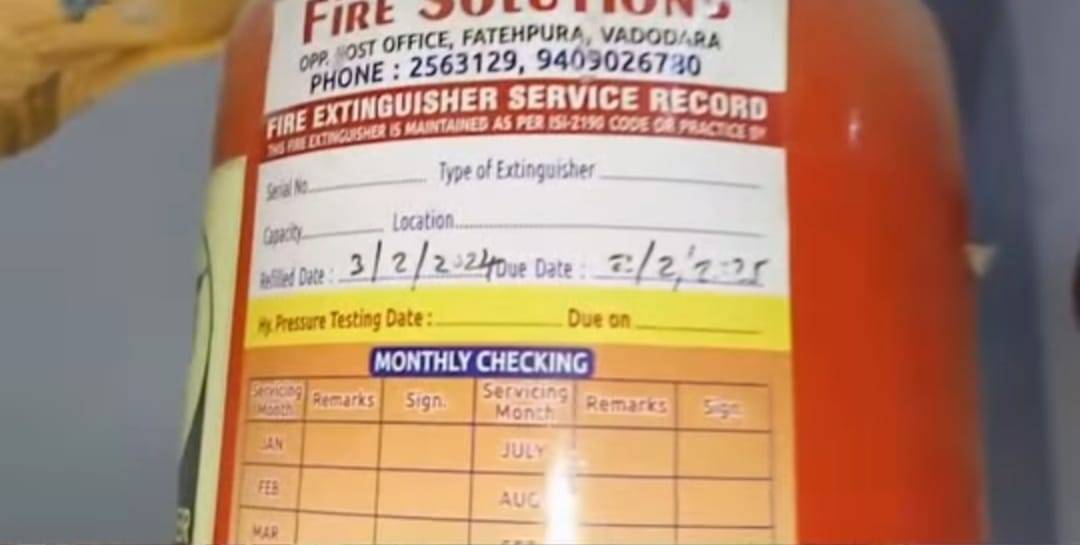 FIRE SOLUTIONS
OPP. POST OFFICE, FATEHPURA, VADODARA
PHONE : 2563129, 9409026780
FIRE EXTINGUISHER SERVICE RECORD
THIS FIRE EXTINGUISHER IS MAINTAINED AS PER ISI-2190 CODE OF PRACTICE BY
Serial No. Type of Extinguisher
Capacity Location
Refilled Date : 3/2/2024 Due Date : /2/2025
Hy. Pressure Testing Date : Due on
MONTHLY CHECKING
Servicing Month Remarks Sign. Servicing Month Remarks Sign.
JAN JULY
FEB AUG
MAR